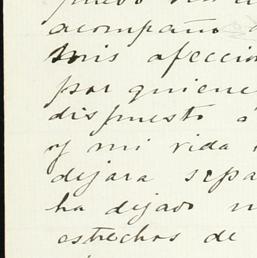 acompaño
mis afeccio
por quiene
dispuesto a
y mi vida
dejara sepa
ha dejado
estrechos de